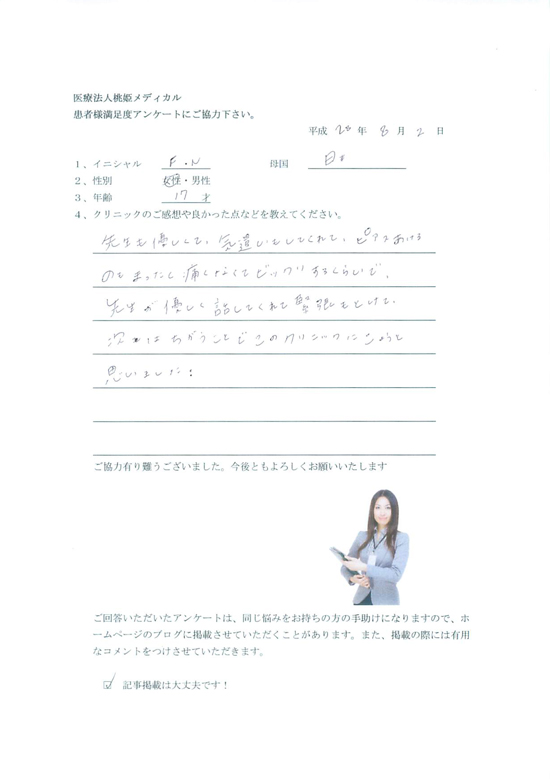 医療法人桃姫メディカル
患者様満足度アンケートにご協力下さい。
平成 26 年 8 月 2 日
1、イニシャル F.N 母国 日本
2、性別 女性・男性
3、年齢 17 才
4、クリニックのご感想や良かった点などを教えてください。
先生も優しくて、気遣いもしてくれて、ピアスあける
のもまったく痛くなくてビックリするくらいで、
先生が優しく話してくれて緊張もとけて、
次はちがうことでこのクリニックにこようと
思いました!
ご協力有り難うございました。今後ともよろしくお願いいたします
ご回答いただいたアンケートは、同じ悩みをお持ちの方の手助けになりますので、ホ
ームページのブログに掲載させていただくことがあります。また、掲載の際には有用
なコメントをつけさせていただきます。
☑ 記事掲載は大丈夫です!